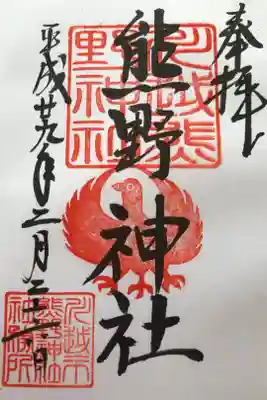 奉拝
川越熊
野神社
熊野神社
平成廿九年二月
川越市
熊野神社
社務所